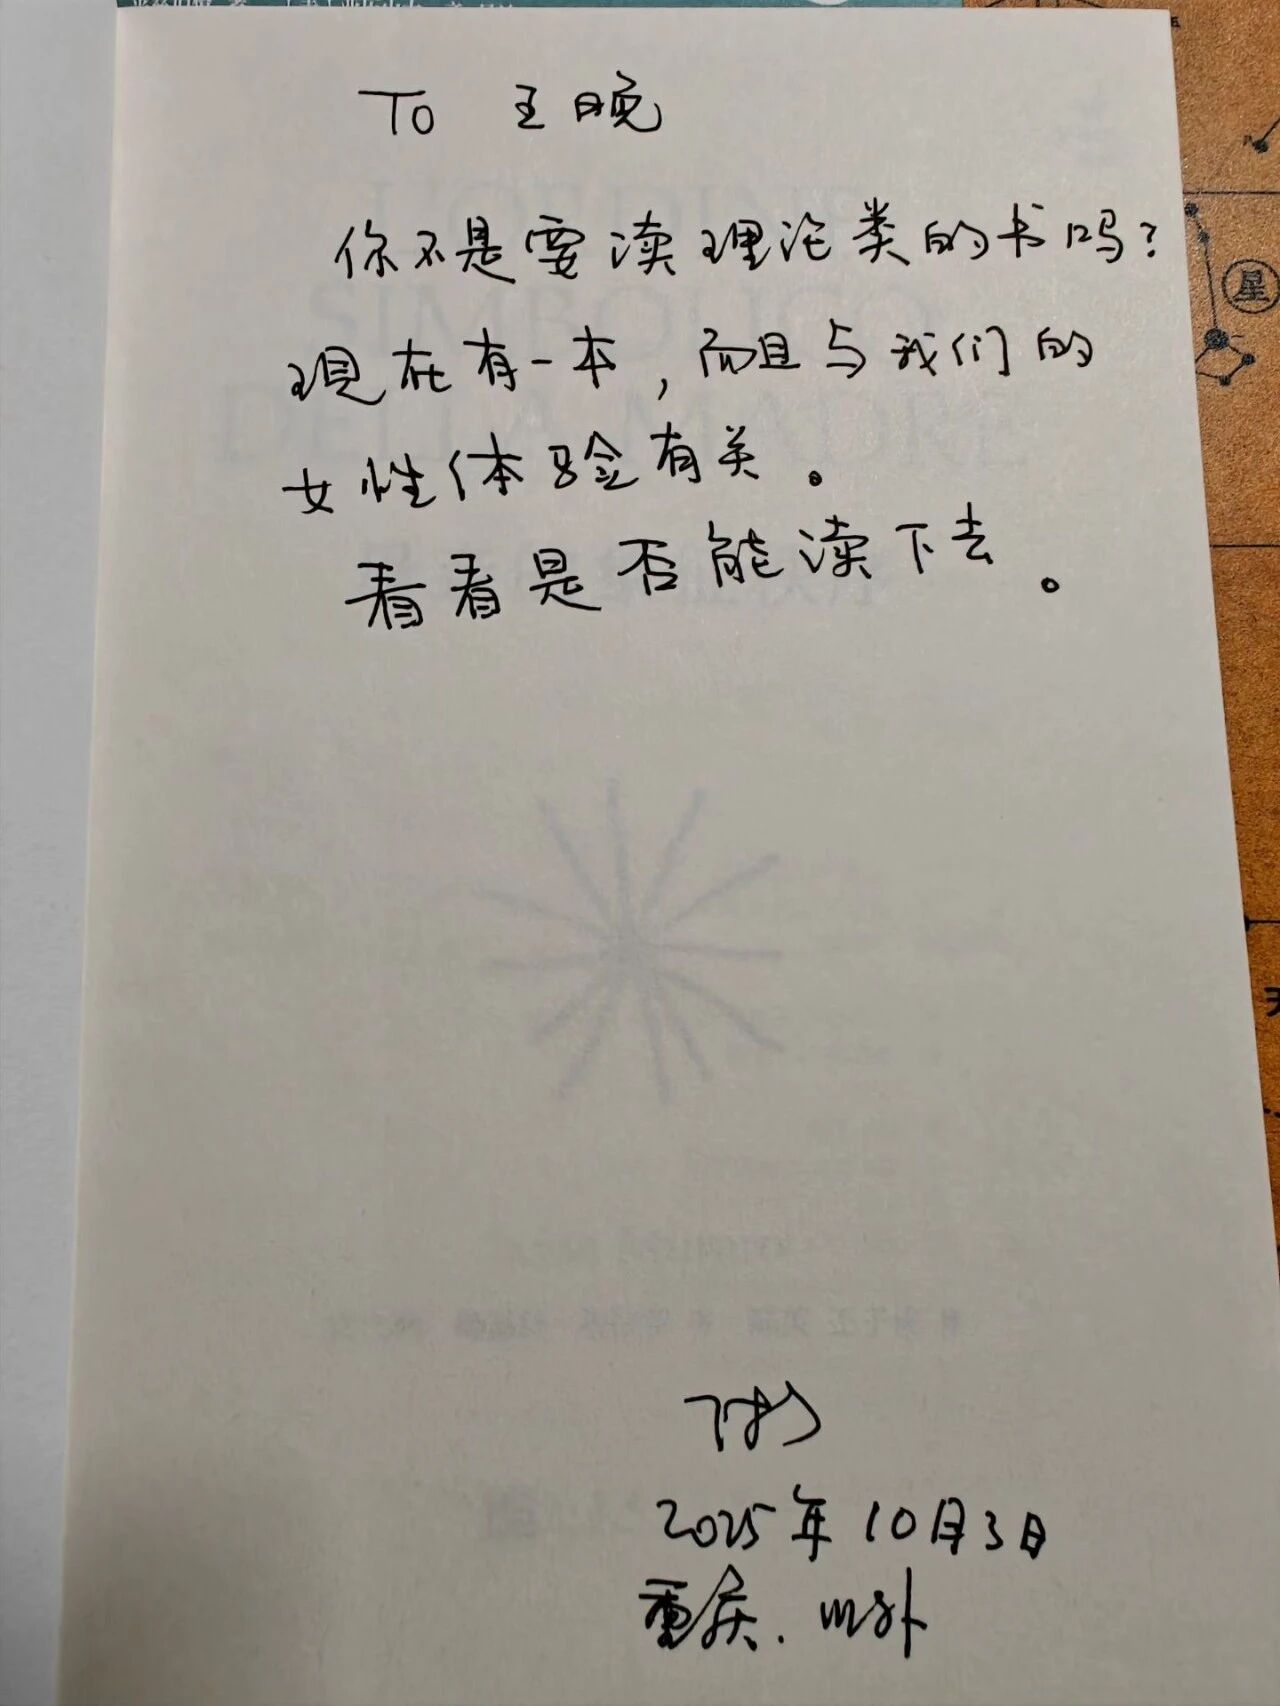 To 王晚
你不是要读理论类的书吗？
现在有一本，而且与我们的
女性体验有关。
看看是否能读下去。
2025年10月3日
重庆.
星
L'ORDINE
SIMBOLICO
DELLA MADRE